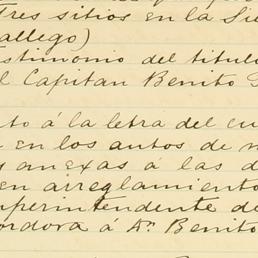 Tres sitios en la Sie
allego)
estimonio del titulo
l Capitan Benito G
to á la letra del cu
en los autos de m
anexas á las d
en arreglamiento
uperintendente de
ordova á Dn. Benito